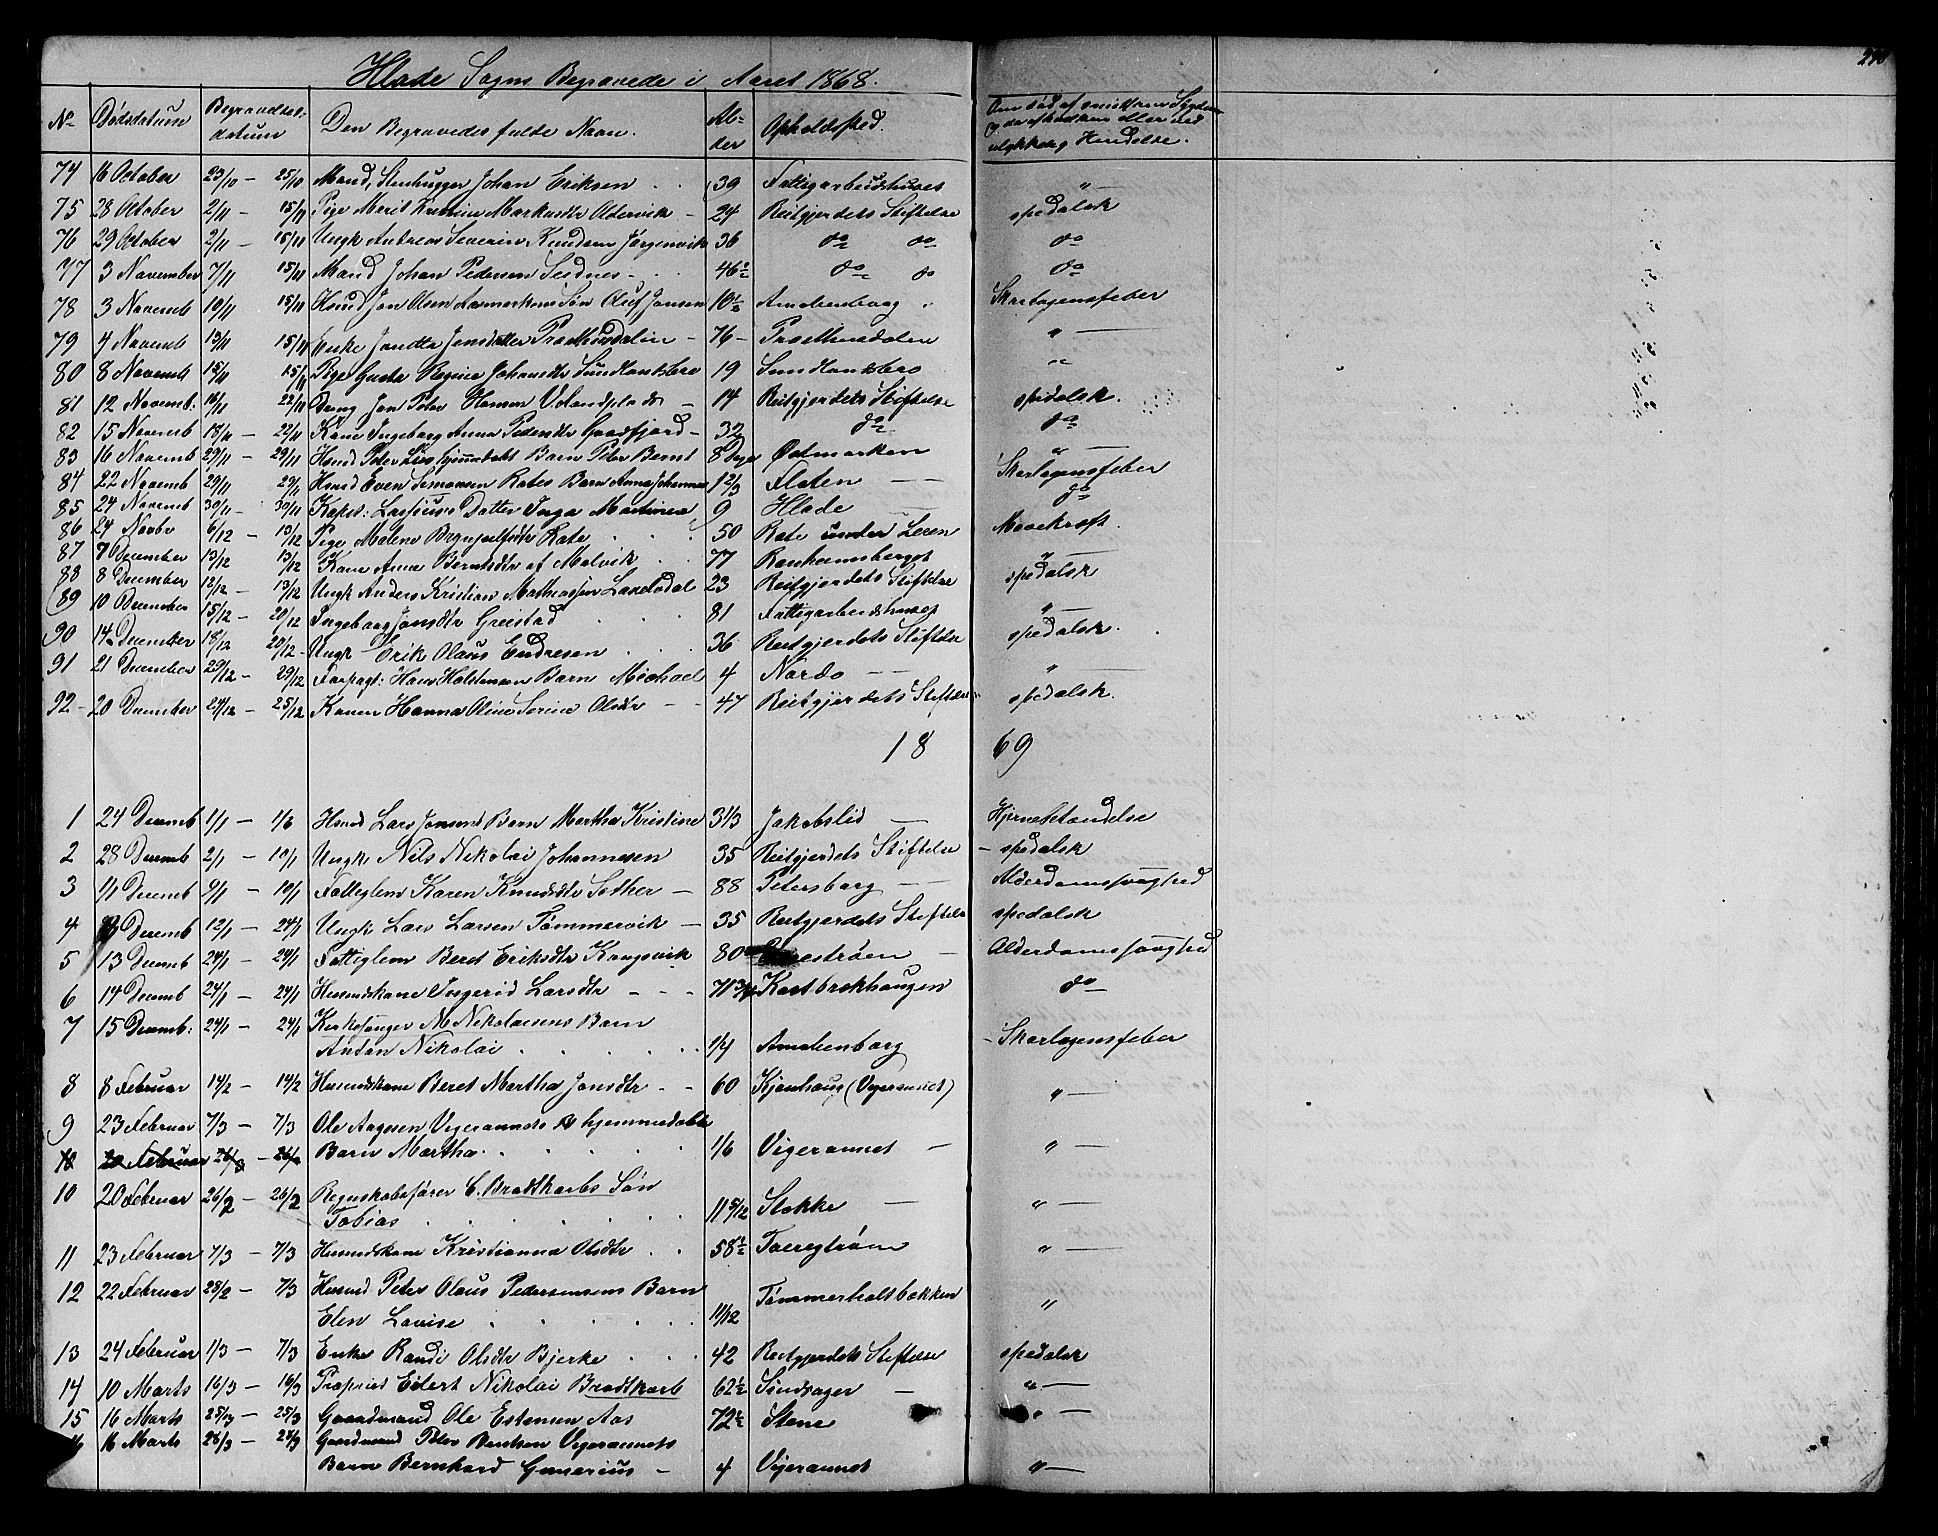 Hlade Sogns Begravede i Aaret 1868.
240
No Dødsdatum Begravelses-datum Den Begravedes fulde Navn. Alder Opholdssted. Om død af smitsom Sygdom eller ved ulykkelig Hendelse.
74 16 October 23/10 — 25/10 Mand, Stenhugger Johan Eriksen 39 Fattigarbeidshuset " —
75 28 October 2/11 — 15/11 Pige Merit Markusdtr Aldervik 24 Reitgjerdets Stiftelse spedalsk
76 29 October 2/11 — 15/11 Ungk Andreas Severin Knudsen Jørgenvik 36 do do do
77 3 November 7/11 15/11 Mand Johan Pedersen Seidnes 46½ do do do
78 3 Novemb 10/11 15/11 Husmd Jon Olsen Søn Oluf Jonsen 10½ Amalienborg Skarlagensfeber
79 4 Novemb 13/11 15/11 Enke Jonsdatter 76 " —
80 8 Novemb 15/11 15/11 Pige Regine Johansdtr Sundlandsbro 19 Sundlandsbro "
81 12 Novemb: 16/11 22/11 Dreng Jon Peter Hansen 14 Reitgjerdets Stiftelse spedalsk.
82 15 Novemb 18/11 — 22/11 Kone Ingeborg Anna Pedersdtr Graafjord 32 do do
83 16 Novemb 29/11 — 29/11 Husmd Peter Barn Peter Bernt 8 Dage Østmarken " —
84 22 Novemb 29/11 29/11 Husmd Even Simonsen Rates Barn Anna Johanna 1 2/3 Flaten — Skarlagensfeber
85 24 Novemb 30/11 — 30/11 Datter Inga Martinea 9 Hlade do
86 24 Novbr 6/12 — 13/12 Pige Malene Brynjulfsdtr Rate 50 Rate under Leren Mavekræft.
87 7 December 13/12 13/12 Kone Anne Berntsdtr af Malvik 77 Ranheimsberget " —
88 8 December 12/12 — 13/12 Ungk Anders Kristian Mathiassen 23 Reitgjerdets Stiftelse spedalsk
89 10 December 15/12 — 20/12 Ingeborg Jonsdtr Greistad 81 Fattigarbeidshuset " —
90 14 December 18/12 20/12 Ungk Erik Olaus Endresen 36 Reitgjerdets Stiftelse spedalsk.
91 21 December 29/12 — 29/12 Hans Holstensen Barn Michael 4 Nardo — " —
92 20 December 24/12 — 25/12 Konen Hanna Oline Serine Olsdtr 47 Reitgjerdets Stiftelse spedalsk.
18 69
1 24 Decemb 1/1 — 1/6 Husmd Lars Jonsens Barn Martha Kristine 3 1/3 Jakobslid — Hjernebetændelse
2 28 Decemb 2/1 — 10/1 Ungk. Nils Nikolai Johannesen 35 Reitgjerdets Stiftelse — spedalsk
3 11 Decemb 9/1 — 10/1 Fattiglem Karen Knudsdtr Sæther — 88 Petersborg — Alderdomssvaghed
4 Decemb 12/1 — 24/1 Ungk Lars Larsen Tømmervik — 35 Reitgjerdets Stiftelse spedalsk
5 13 Decemb 24/1 — 24/1 Fattiglem Beret Eriksdtr Kongsvik 80 — Alderdomssvaghed
6 14 Decemb 24/1 — 24/1 Husmdskone Ingerid Larsdtr — 71 3/4 Kastbrekhaugen do
7 15 Decemb: 24/1 — 24/1 Kirkesanger M Nikolaisens Barn
Anton Nikolai 1/4 Amalienborg — Skarlagensfeber
8 8 Februar 14/2 — 14/2 Husmdskone Beret Martha Jonsdtr — 60 Kjonhaug (Vigeraunet) " —
9 23 Februar 7/3 — 7/3 Ole Aagesen Vigeraunets hjemmedøbte
Barn Martha 1/6 Vigeraunet — " —
10 20 Februar 26/2 — 26/2 Regnskabsfører C. Bradtkorbs Søn
Tobias 11 5/12 Stokke — " —
11 23 Februar 7/3 — 7/3 Husmdskone Kristianna Olsdtr 58½ " —
12 22 Februar 28/2 — 7/3 Husmd Peter Olaus Pedersensens Barn
Elen Lovise 11/12 Tømmerholtbækken "
13 24 Februar 1/3 — 7/3 Enke Randi Olsdtr Bjerke 42 Reitgjerdets Stiftelse spedalsk
14 10 Marts 16/3 — 16/3 Propriet Eilert Nikolai Bradtkorb 62½ — " —
15 16 Marts 25/3 — 25/3 Gaardmand Ole Estensen Aas 72½ Stene " —
16 Marts 28/3 — 28/3 Gaardmand Peter Berntsen Vigeraunets
Barn Bernhard Gunerius — 4 Vigeraunet " —